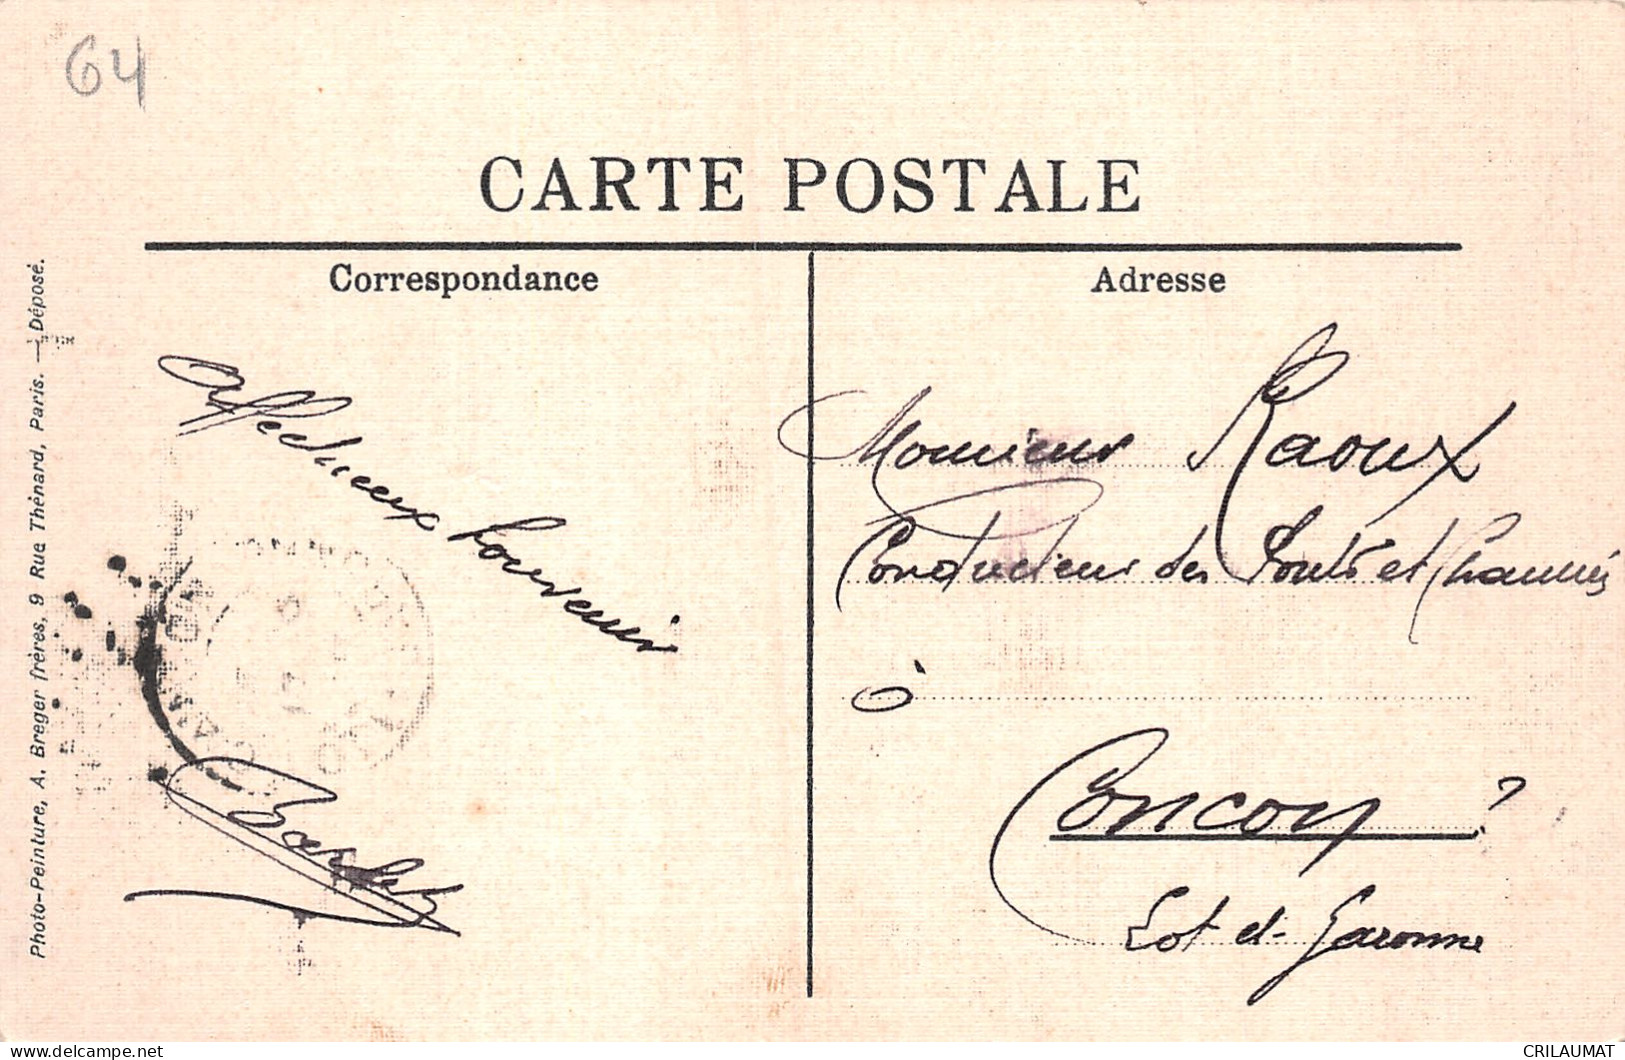 64
CARTE POSTALE
Correspondance
Adresse
Affectueux souvenir
Monsieur Raoux
Conducteur des Ponts et Chaussées
à
Concoy ?
Lot et Garonne
Photo-Peinture, A. Breger frères, 9 Rue Thénard, Paris. — Déposé.
CRILAUMAT